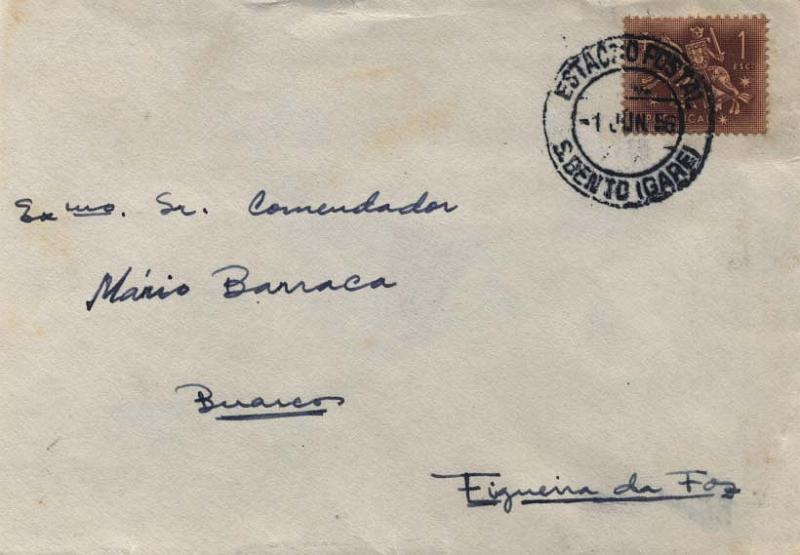 1
ESC.
PORTUGAL
ESTAÇÃO POSTAL
-1 JUN 56
S. BENTO (GARE)
Exmo. Sr. Comendador
Mário Barraca
Buarcos
Figueira da Foz